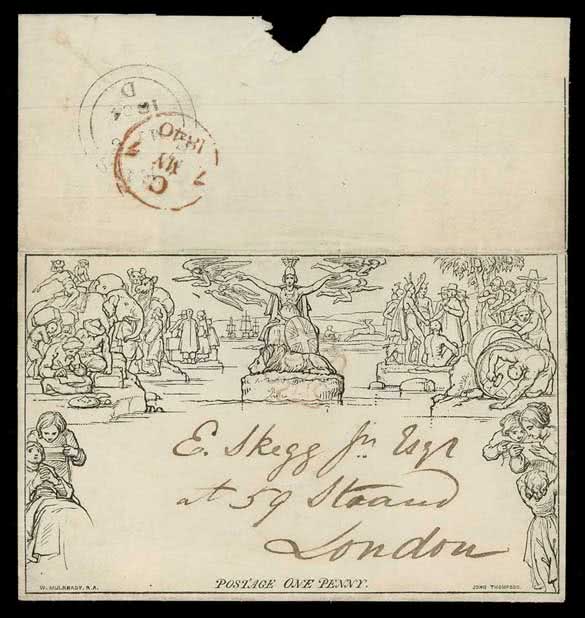 E. Skegg Jr. Esqr
at 59 Strand
London
POSTAGE ONE PENNY.
W. MULREADY, R.A.
JOHN THOMPSON.
1840
MY
7 7
C
D